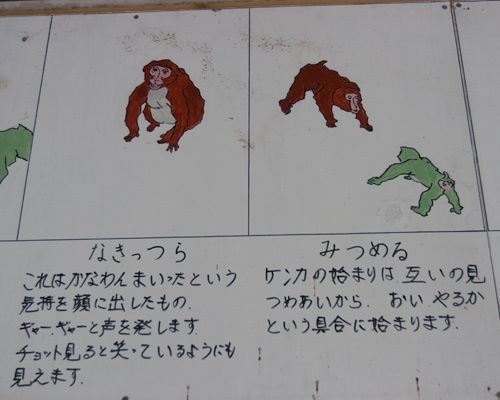 なきっつら
これはかなわんまいったという
気持を顔に出したもの.
ギャー.ギャーと声を発します.
チョット見ると笑っているようにも
見えます.
みつめる
ケンカの始まりは互いの見
つめあいから. おい やるか
という具合に始まります.